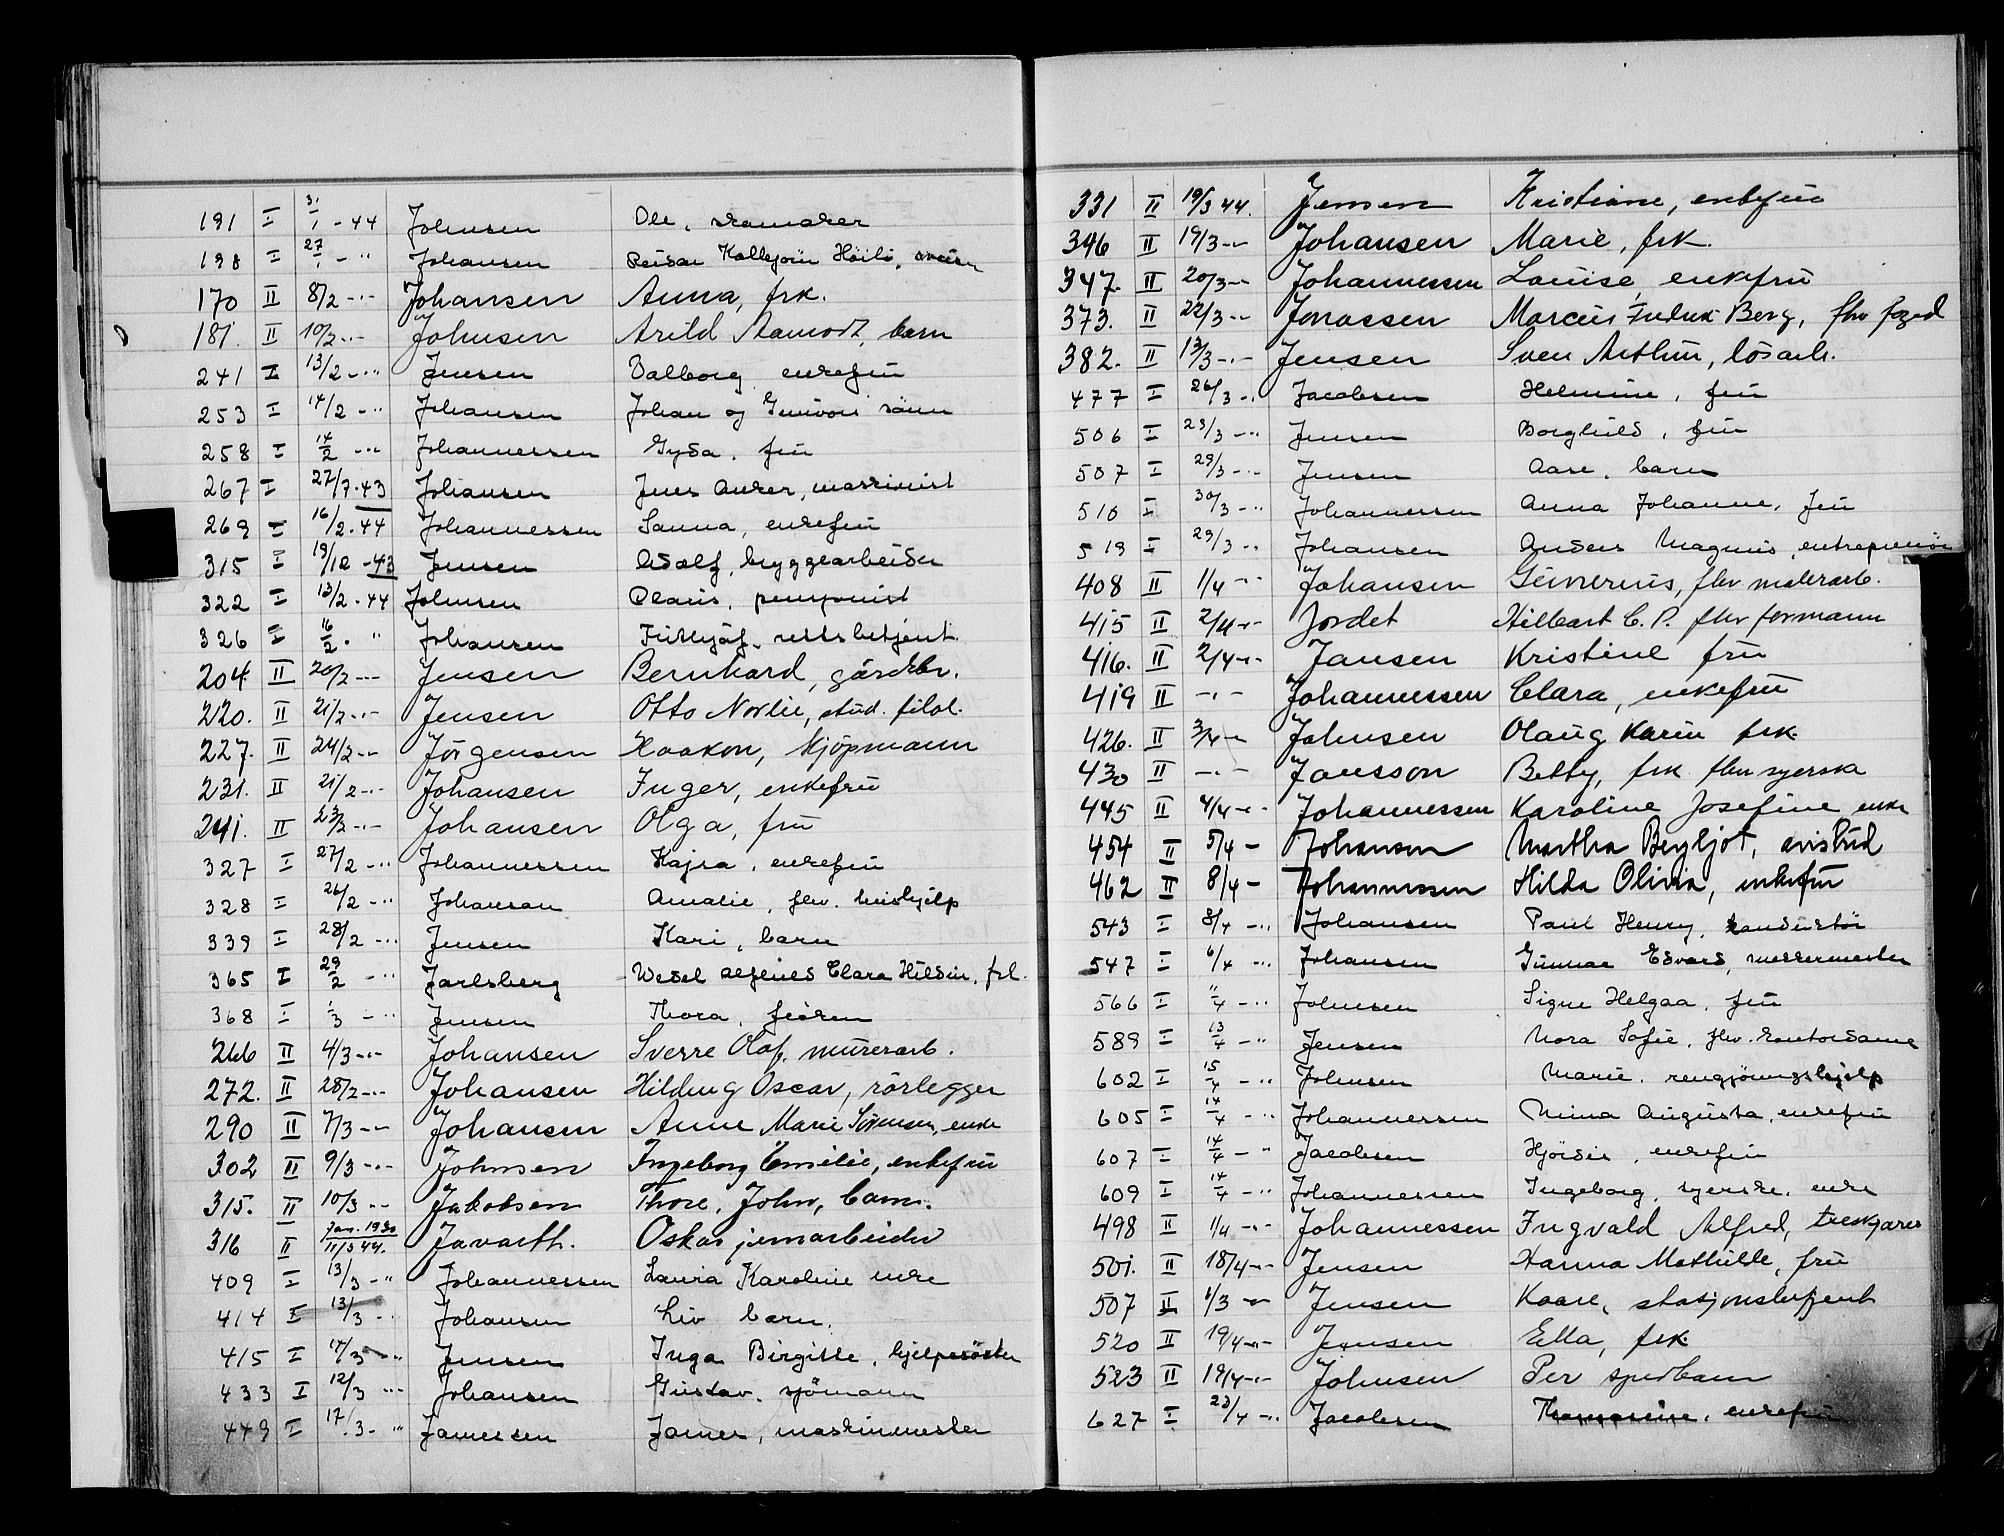 191 I 31/1 - 44 Johnsen Ole, skomaker
198 I 27/1 - " Johansen Reidar Kolbjørn
170 II 8/2 -"- Johansen Anna, frk.
181. II 10/2 -"- Johnsen Arild Aamodt, barn
241 I 13/2 -"- Jensen Valborg enkefru
253 I 14/2 -" Johansen Johan og Gunvors sönn
258 I 14/2 -"- Johannessen Gyda, fru
267 I 27/7.43 Johansen Jens Anker, maskinist
269 I 16/2.44 Johannessen Sanna, enkefru
315 I 19/12 -43 Jensen Adolf, bryggearbeider
322 I 13/2.44 Johnsen Claus, pensjonist
326 I 16/2. " Johansen rettsbetjent
204 II 20/2 -"- Jensen Bernhard, gårdbr.
220. II 21/2 -"- Jensen Otto Norlie, stud. filol.
227. II 24/2 -"- Jörgensen Haakon, kjöpmann
231. II 21/2 -"- Johansen Inger, enkefru
241. II 23/2 -"- Johansen Olga, fru
327 I 27/2 -"- Johannessen Kajsa, enkefru
328 I 26/2 -" Johansen Amalie, flv. hushjelp
339 I 28/2 -"- Jensen Kari, barn
365 I 29/2 -" Jarlsberg Wedel Clara frk.
368 I 1/3 -" Jensen Thora, fröken
266 II 4/3 -"- Johansen Sverre Olaf, murerarb.
272. II 28/2 -"- Johansen Hilding Oscar, rörlegger
290 II 7/3 -"- Johansen Anne Marie Sørensen, enke
302 II 9/3 -"- Johnsen Ingeborg Emilie, enkefru
315. II 10/3 -"- Jakobsen Thore, John, barn.
316 II 11/3 44. Javarth. Oskar jernarbeider
409 I 13/3 -" Johannessen Laura Karoline enke
414 I 13/3 -" Johansen Liv barn.
415 I 14/3 -" Jensen Inga Birgitte, hjelpesöster
433 I 12/3 -"- Johansen Gustav, sjömann
449 I 17/3 - " Jamessen James, maskinmester
331 II 19/3 44. Jensen Kristiane, enkefru
346 II 19/3 -"- Johansen Marie, frk.
347. II 20/3 -"- Johannessen Louise, enkefru
373. II 22/3 -"- Jonassen Marcus Fredrik Berg, fhv foged
382. II 13/3 -"- Jensen Sven Arthur, lösarb.
477 I 26/3 -" Jacobsen Helmine, fru
506 I 29/3 -"- Jensen Borghild, fru
507 I 29/3 -"- Jensen Aase, barn
510 I 30/3 -" Johannessen Anna Johanne, fru
519 I 29/3 -" Johansen Anders Magnus, entreprenör
408 II 1/4 -"- Johansen fhv malerarb.
415 II 2/4 -"- Jordet Hilbart C. P. fhv formann
416. II 2/4 -"- Jansen Kristine fru
419 II -"- Johannessen Clara, enkefru
426. II 3/4 -"- Johnsen Olaug Karin frk.
430 II -"- Jansson Betty, frk. fhv syerske
445 II 4/4 -"- Johannessen Karoline Josefine enke
454 II 5/4 - Johansen Martha Bergljot,
462 II 8/4 - Johannessen Hilda Olivia, enkefru
543 I 8/4 -"- Johansen Paul Henry, konduktör
547 I 6/4 -"- Johansen Gunnar Edvard, messemester
566 I 11/4 -"- Johnsen Signe Helgaa, fru
589 I 13/4 -" Jensen Nora Sofie, flv. kontordame
602 I 15/4 -" Johnsen Marie, rengjöringshjelp
605 I 14/4 -" Johannessen Nina Augusta, enkefru
607 I 14/4 - " Jacobsen Hjördis, enkefru
609 I 14/4 -" Johannessen Ingeborg, syerske, enke
498 II 1/4 -"- Johannessen Ingvald Alfred,
501. II 18/4 -"- Jensen Hanna Mathilde, fru
507 II 1/3 -"- Jensen Kaare, stasjonsbetjent
520 II 19/4 -"- Jensen Ella, frk.
523 II 19/4 -"- Johnsen Per spedbarn
627 I 23/4 -" Jacobsen Thomasine, enkefru